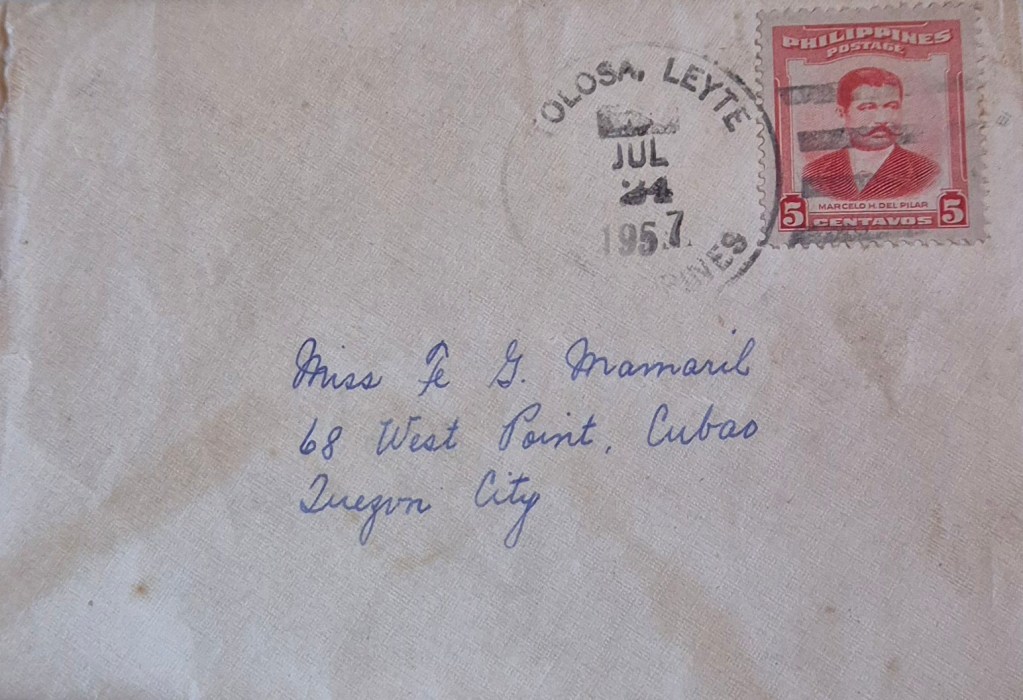 PHILIPPINES
POSTAGE
MARCELO H. DEL PILAR
5 CENTAVOS 5
OLOSA, LEYTE
JUL
1957
PINES
Miss Fe G. Mamaril
68 West Point, Cubao
Quezon City